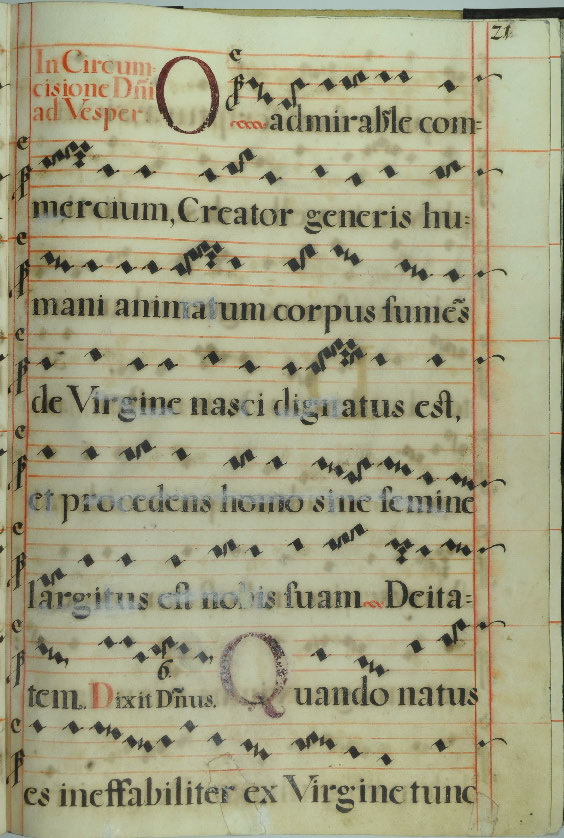 21
In Circum-
cisione Dn̄i
ad Vesper
O admirabile com=
mercium, Creator generis hu=
mani animatum corpus ſumēs
de Virgine nasci dignatus eſt,
et procedens homo sine ſemine
largitus eſt nobis ſuam Deita=
tem. Dixit Dn̄us. 6. Quando natus
es ineffabiliter ex Virgine tunc